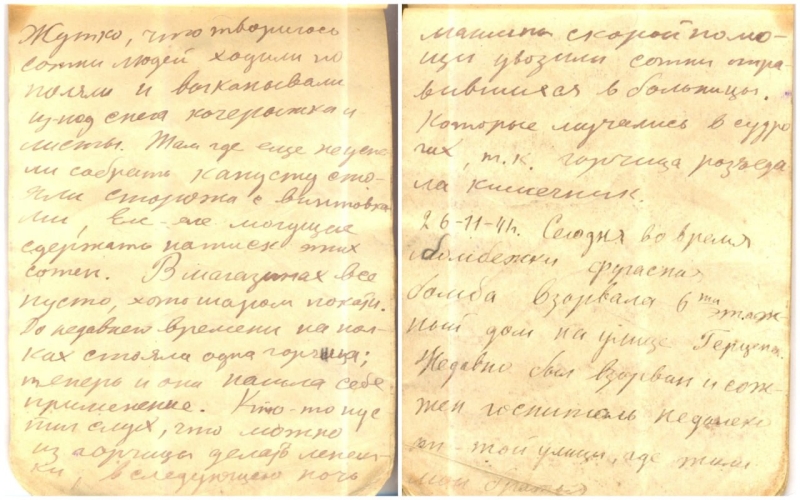 Жутко, что творилось
сотни людей ходили по
полям и выкапывали
из под снега кочерыжки и
листы. Там где еще не успе-
ли собрать капусту сто-
яли сторожа с винтовка-
ми, еле-еле могущие
сдержать натиск этих
сотен. В магазинах все
пусто, хоть шаром покати.
До недавнего времени на пол-
ках стояла одна горчица;
теперь и она нашла себе
применение. Кто-то пус
тил слух, что можно
из горчицы делать лепеш-
ки, в следующею ночь
машины скорой помо-
щи увозили сотни отра-
вившиеся в больницы.
Которые мучались в судро
гах, т.к. горчица разъеда
ла кишечник.
26-11-41. Сегодня во время
бомбежки фугасная
бомба взорвала 6ти этаж-
ный дом на улице Герцена.
Недавно был взорван и сож-
жен госпиталь недалеко
от той улицы, где жили
мои братья